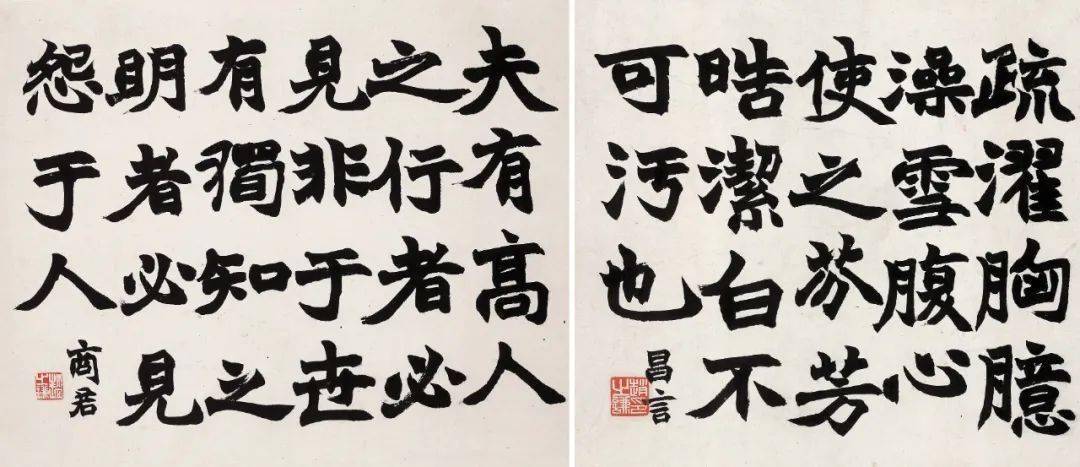 疏濯胸臆
澡雪腹心
使之芬芳
晧潔白不
可污也
昌言
夫有高人
之行者必
見非于世
有獨知之
明者必見
怨于人
商君